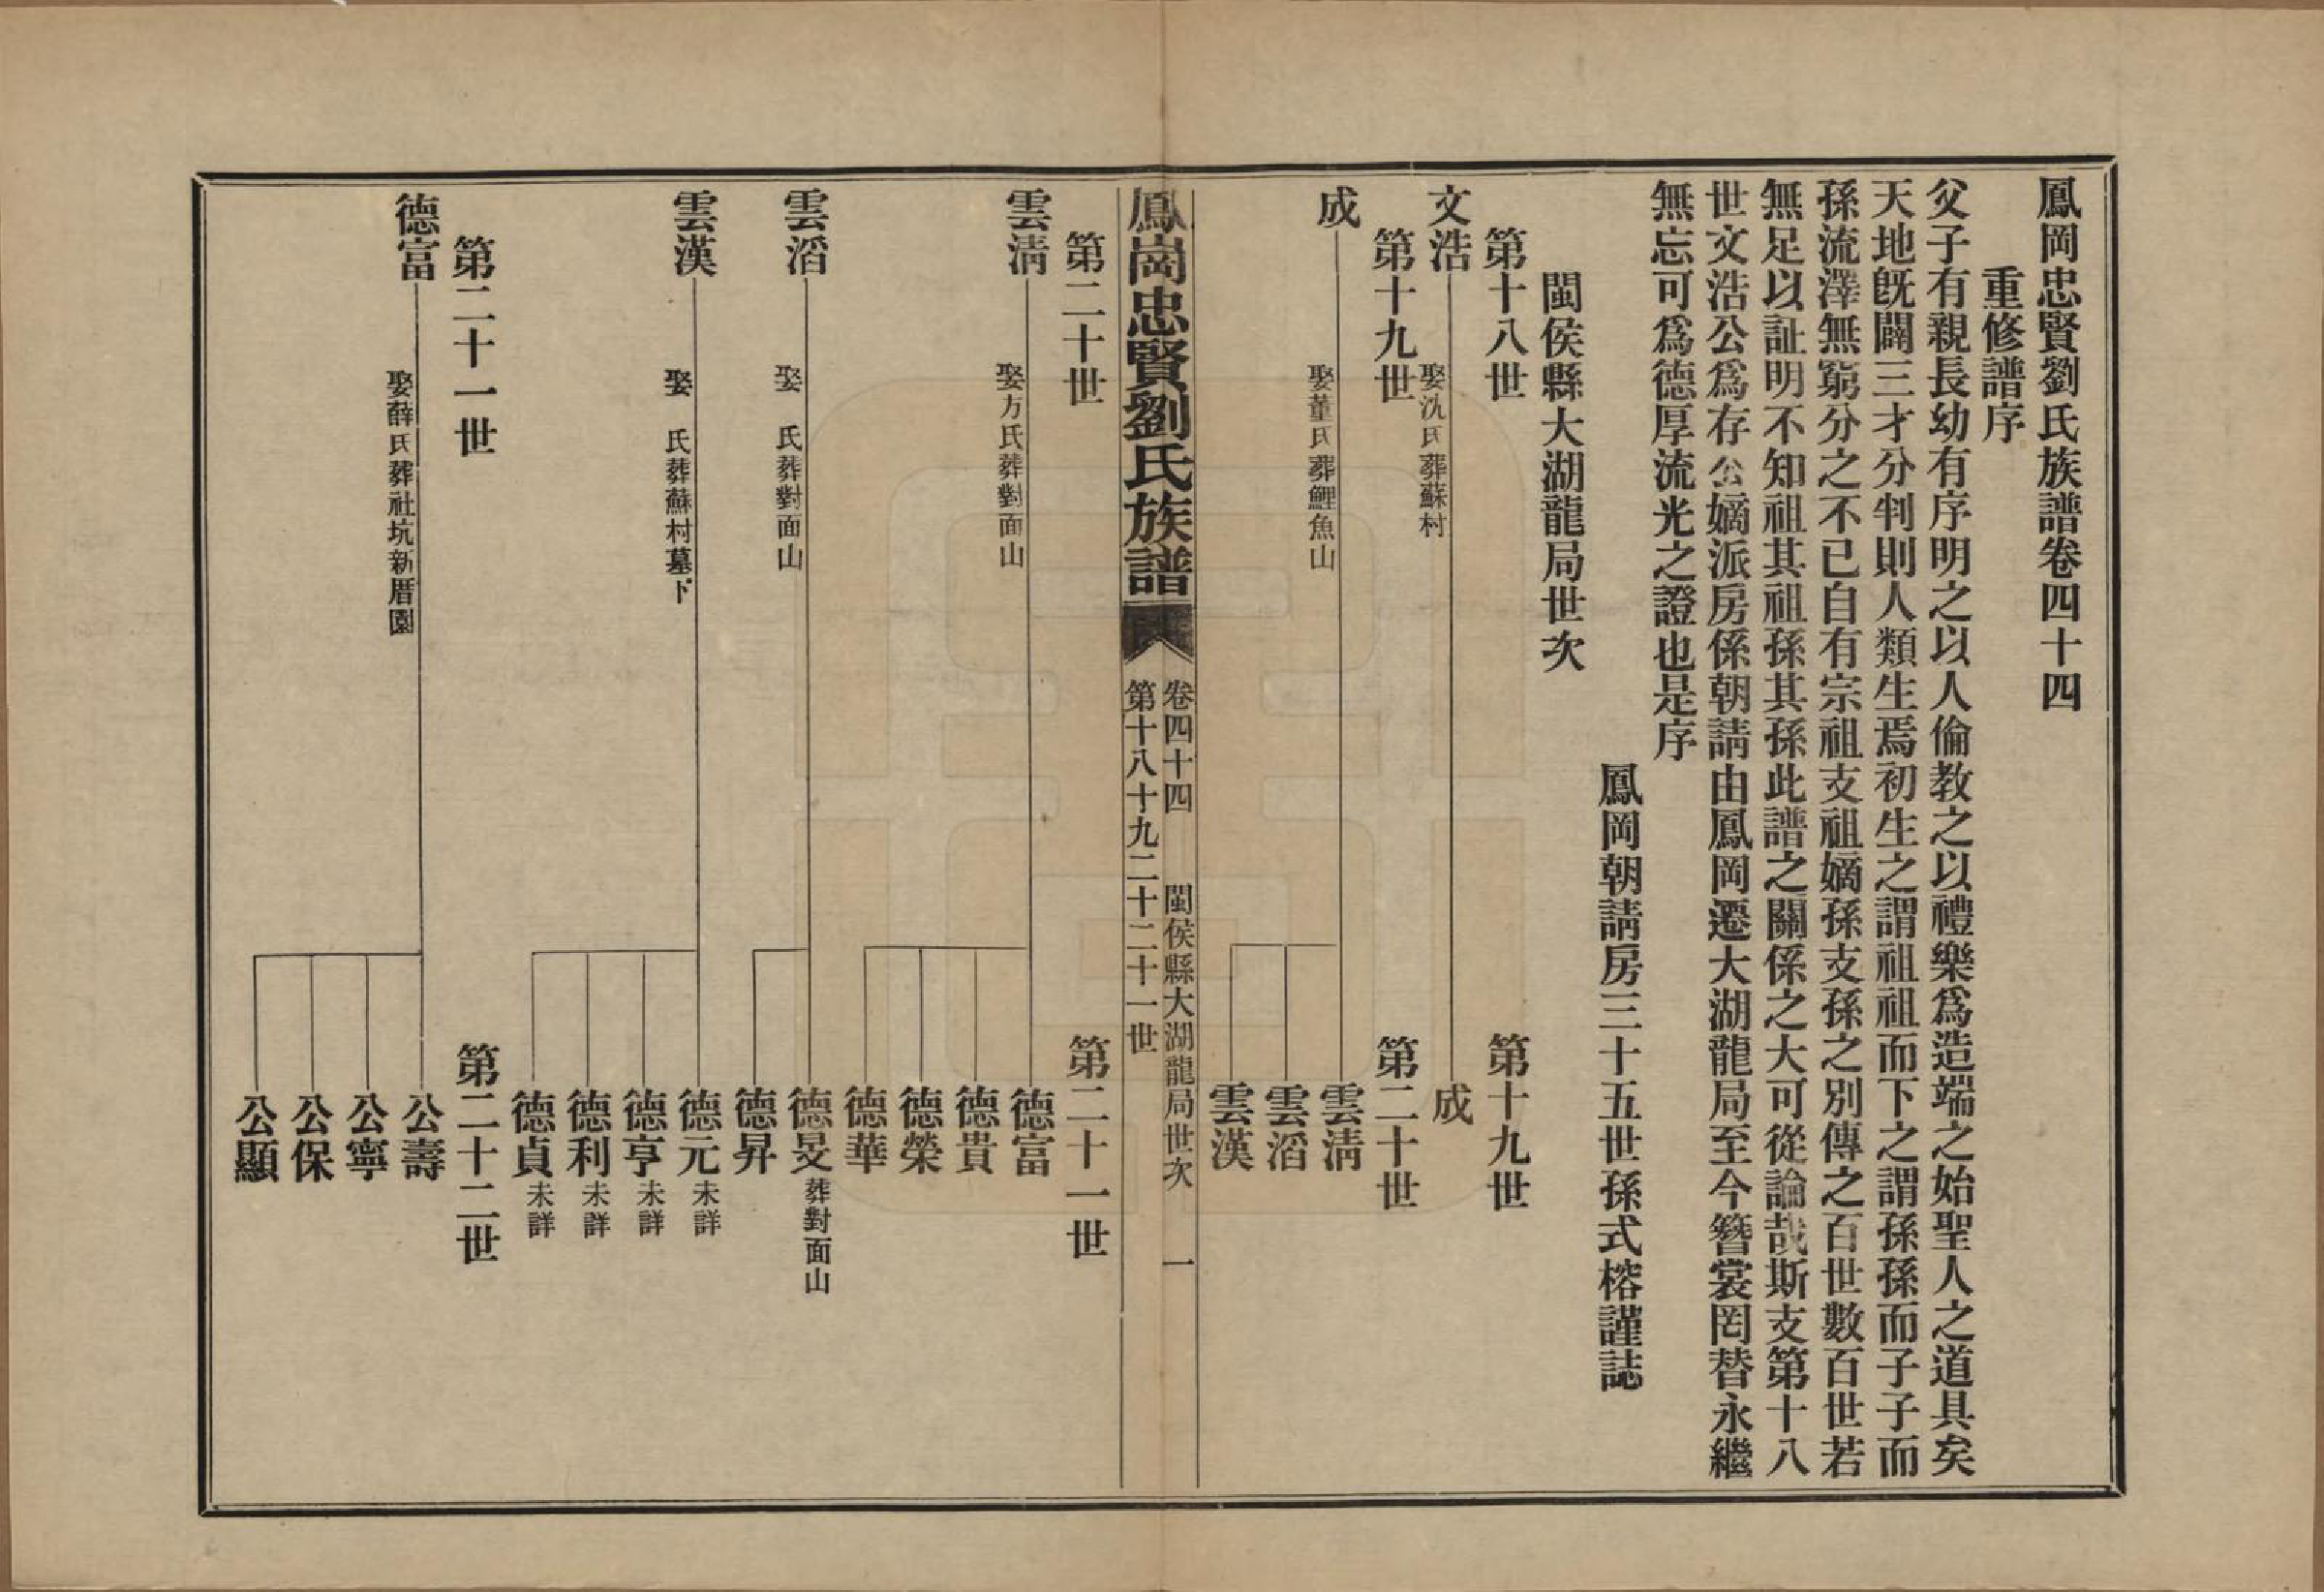 鳳岡忠賢劉氏族譜卷四十四
重修譜序
父子有親長幼有序明之以人倫教之以禮樂爲造端之始聖人之道具矣
天地旣闢三才分判則人類生焉初生之謂祖祖而下之謂孫孫而子子而
孫流澤無窮分之不已自有宗祖支祖嫡孫支孫之別傳之百世數百世若
無足以証明不知祖其祖孫其孫此譜之關係之大可從論哉斯支第十八
世文浩公爲存公嫡派房係朝請由鳳岡遷大湖龍局至今簪裳罔替永繼
無忘可爲德厚流光之證也是序
鳳岡朝請房三十五世孫式榕謹誌
閩侯縣大湖龍局世次
第十八世 第十九世
文浩 娶沈氏葬蘇村 成
第十九世 第二十世
成 娶董氏葬鯉魚山 雲淸
雲滔
雲漢
鳳崗忠賢劉氏族譜 卷四十四 閩侯縣大湖龍局世次 一
第十八十九二十二十一世
第二十世 第二十一世
雲淸 娶方氏葬對面山 德富
德貴
德榮
德華
雲滔 娶 氏葬對面山 德旻 葬對面山
德昇
雲漢 娶 氏葬蘇村墓下 德元 未詳
德亨 未詳
德利 未詳
德貞 未詳
第二十一世 第二十二世
德富 娶薛氏葬社坑新厝園 公壽
公寧
公保
公顯